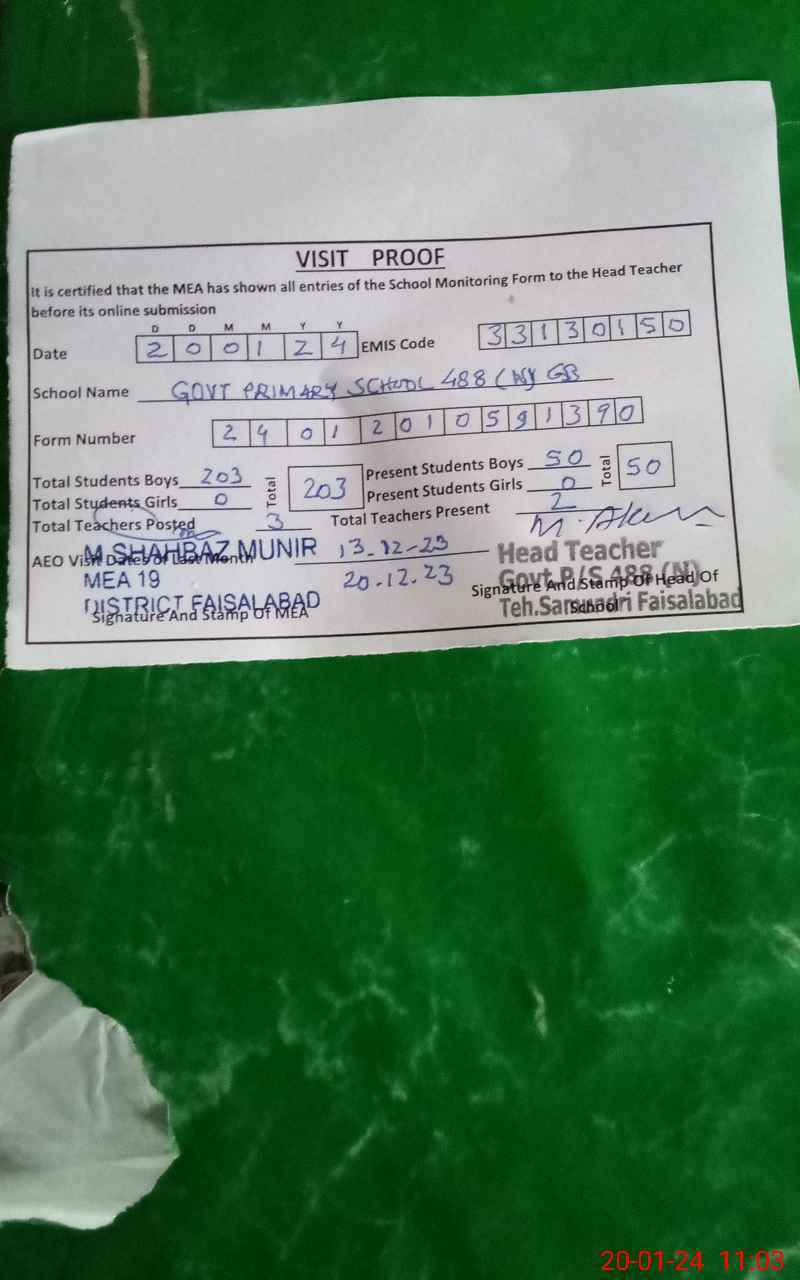 VISIT PROOF
It is certified that the MEA has shown all entries of the School Monitoring Form to the Head Teacher
before its online submission
D D M M Y Y
Date 2 0 0 1 2 4 EMIS Code 3 3 1 3 0 1 5 0
School Name GOVT PRIMARY SCHOOL 488 (N) GB
Form Number 2 4 0 1 2 0 1 0 5 9 1 3 9 0
Total Students Boys 203 Total 203 Present Students Boys 50 Total 50
Total Students Girls 0 Present Students Girls 0
Total Teachers Posted 3 Total Teachers Present 2
AEO Visit Dates of Last Month 13-12-23
20-12-23
M.SHAHBAZ MUNIR
MEA 19
DISTRICT FAISALABAD
Signature And Stamp Of MEA
Head Teacher
Govt.P/S 488 (N)
Teh.Samundri Faisalabad
Signature And Stamp Of Head Of
School
20-01-24 11:03